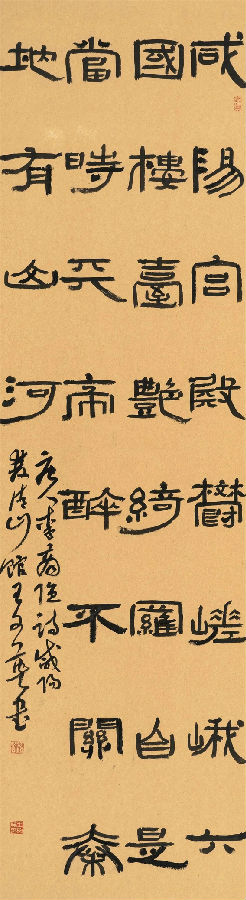 咸陽宮殿鬱嵯峨六
國樓臺艷綺羅自是
當時天帝醉不關秦
地有山河
唐人李商隱詩咸陽
山館王書